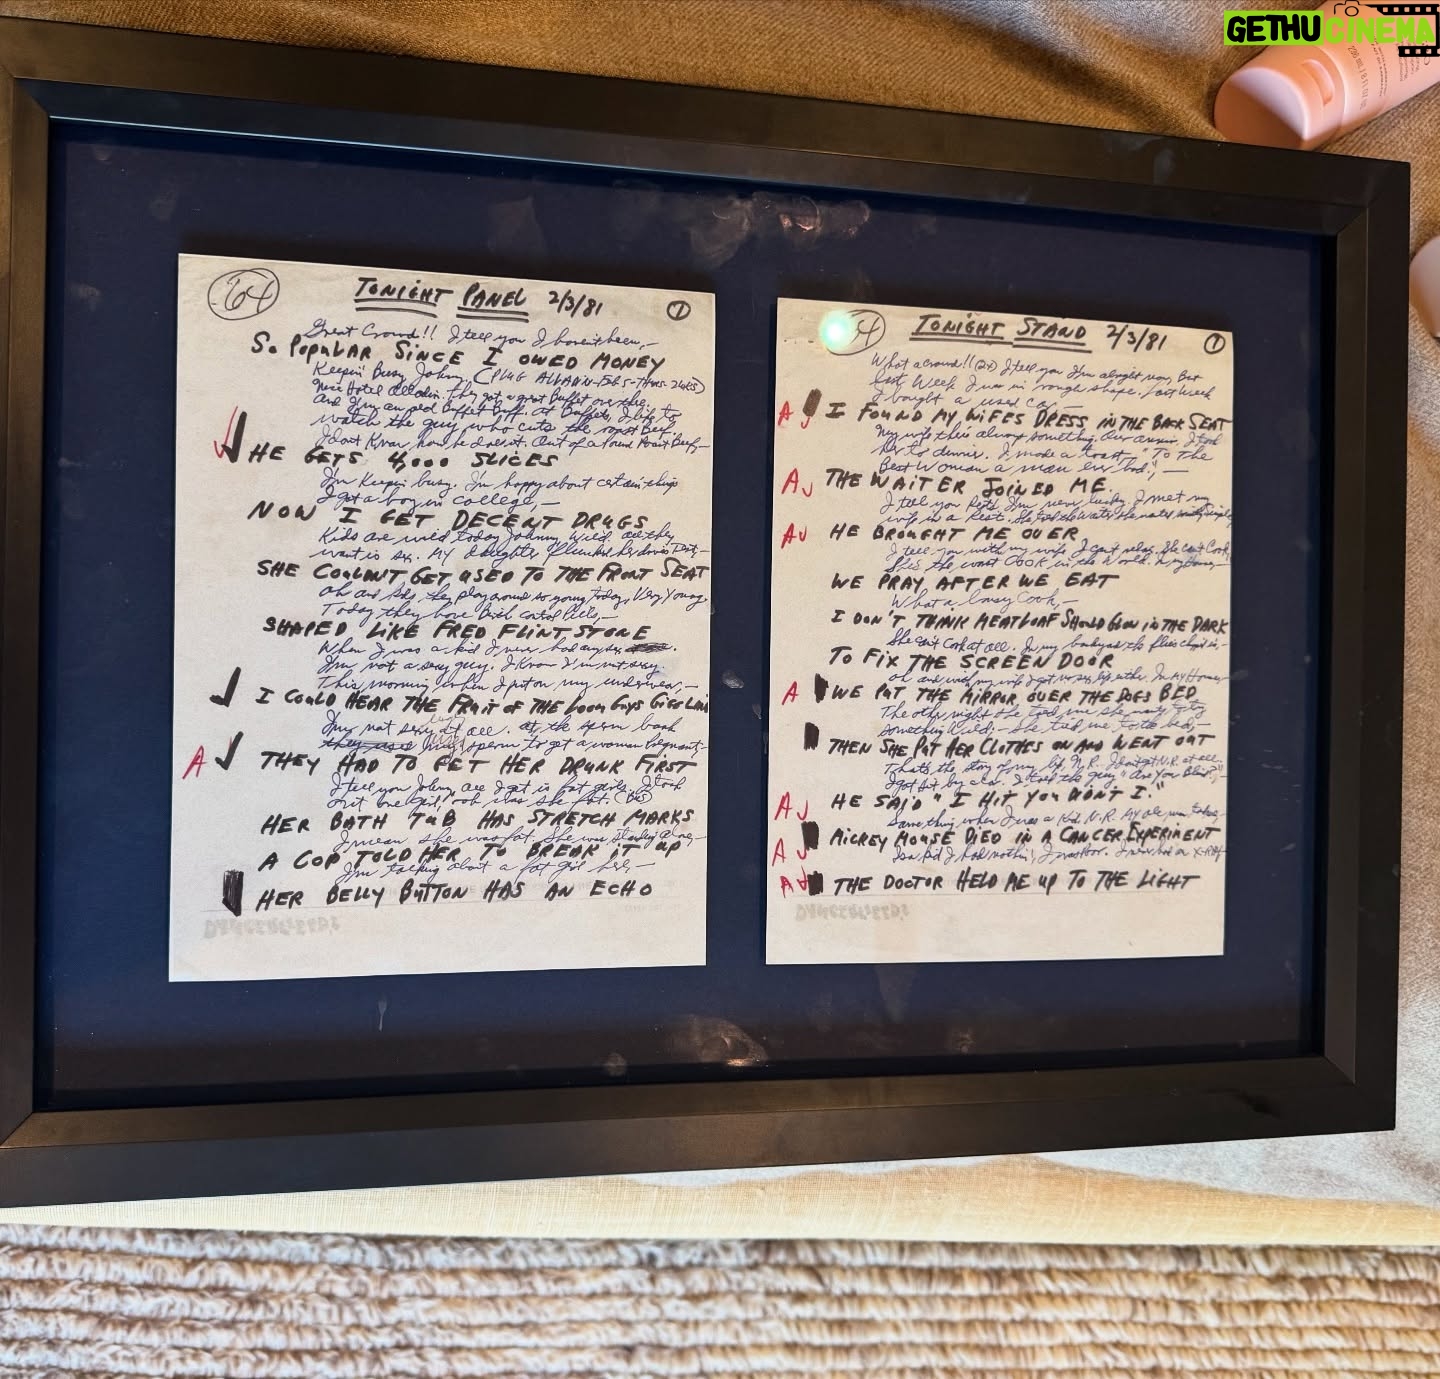 GETHU CINEMA
236 ml / 8 fl oz
64 TONIGHT PANEL 2/3/81 1
Great Crowd!! I tell you I haven't been,—
SO POPULAR SINCE I OWED MONEY
Keepin' Busy Johnny (PLUG ALLADIN-FEB 5-THURS-2WKS)
Nice Hotel Alladin. They got a great Buffet over there
and I'm an ped Buffet Buff. at Buffets, I like to
watch the guy who cuts the roast Beef.
I don't know how he does it. Out of a round Roast Beef,—
HE GETS 4,000 SLICES
I'm Keepin' busy. I'm happy about certain things
I got a boy in college,—
NOW I GET DECENT DRUGS
Kids are wild today Johnny. Wild. all they
want is sex. My daughter flunked her drivers Test,—
SHE COULDN'T GET USED TO THE FRONT SEAT
oh and kids, they play around so young today, Very Young.
Today they have Birth Control Pills,—
SHAPED LIKE FRED FLINTSTONE
When I was a kid I never had any sex.
I'm not a sexy guy. I know I'm not sexy.
This morning when I put on my underwear,—
I COULD HEAR THE FRUIT OF THE LOOM GUYS GIGGLIN
I'm not sexy at all. at the sperm bank
they used my sperm to get a woman Pregnant,—
A THEY HAD TO GET HER DRUNK FIRST
I tell you Johnny, all I get is fat girls. I took
out one girl, ooh was she fat.
HER BATH TUB HAS STRETCH MARKS
I mean she was fat. She was standing alone,—
A COP TOLD HER TO BREAK IT UP
I'm talking about a fat girl here,—
HER BELLY BUTTON HAS AN ECHO
DANGERFIELD'S
64 TONIGHT STAND 2/3/81 1
What a crowd!! (2x) I tell you I'm alright now, But
last Week I was in rough shape. Last Week
I bought a used car,—
A I FOUND MY WIFES DRESS IN THE BACK SEAT
My wife theis always something. Our anniv, I took
her to dinner. I made a toast, "To The
Best Woman a man ever had",—
A THE WAITER JOINED ME.
I tell you Rests I'm never lucky. I met my
wife in a Rest. She told the Waiter she wanted
A HE BROUGHT ME OVER
I tell you with my wife I can't relax. She can't Cook
She's the worst COOK in the World. In my House,—
WE PRAY AFTER WE EAT
What a lousy Cook,—
I DON'T THINK MEATLOAF SHOULD GLOW IN THE DARK
She can't Cook at all. In my backyard the flies chipped in,—
TO FIX THE SCREEN DOOR
oh and with my wife I get no sex life either. In My House
A WE PUT THE MIRROR OVER THE DOGS BED
The other night she told me she may try
something Wild,— she tied me to the bed,—
THEN SHE PUT HER CLOTHES ON AND WENT OUT
That's the story of my life, N.R. I don't get N.R. at all.
I got hit by a car. I told the guy "Are You Blind?",—
A HE SAID "I HIT YOU DIDN'T I."
Same thing when I was a Kid. N.R. My ole man told me,—
A MICKEY MOUSE DIED IN A CANCER EXPERIMENT
Isa kid I had nothin', I was Poor. I never had an X-RAY
A THE DOCTOR HELD ME UP TO THE LIGHT
DANGERFIELD'S